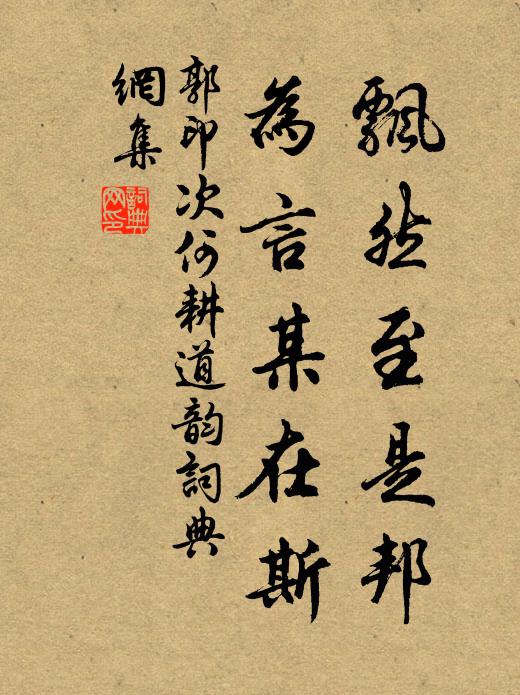 飄然至是邦
為言某在斯
郭印次何耕道韵詞典
網集
詞典網印